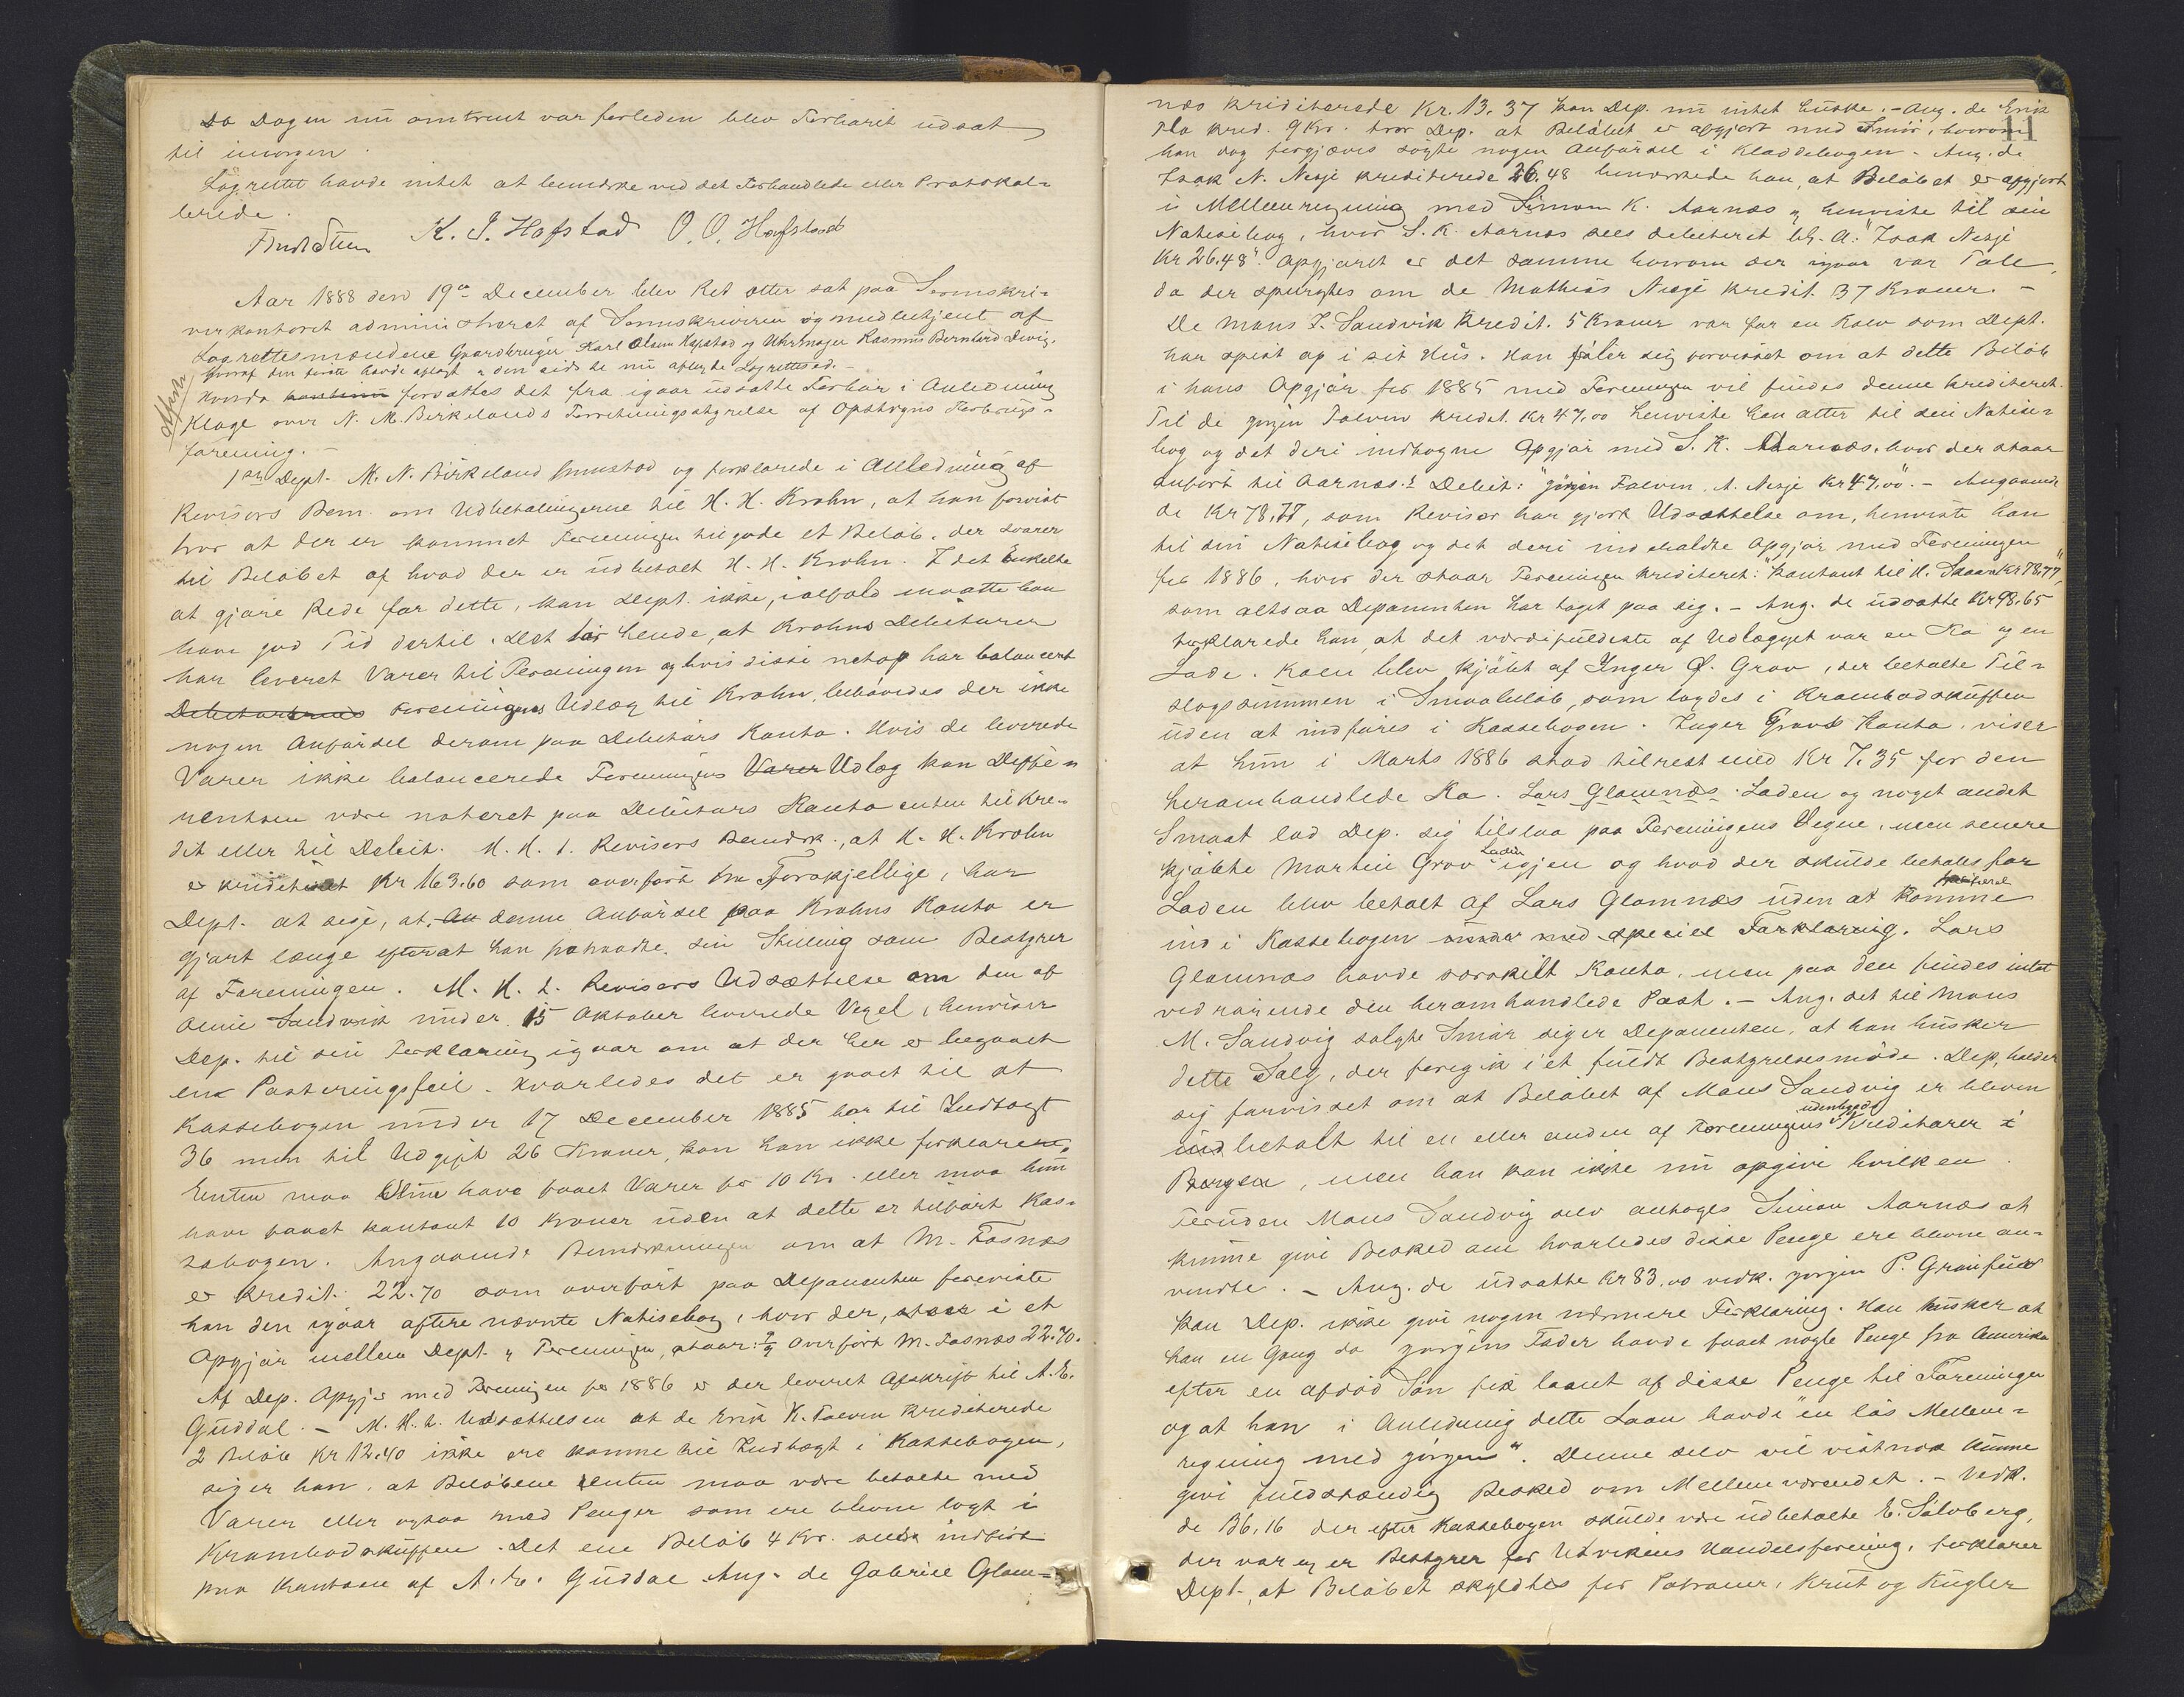 Da Dagen nu omtrent var forleden blev Forhøret udsat
til imorgen.
Lagrettet havde intet at bemærke ved det Forhandlede eller Protokol-
lerede.
K. J. Hofstad O. O. Hafstad
Aar 1888 den 19de December blev Ret atter sat paa Sorenskri-
verkontoret administreret af Sorenskriveren og medbetjent af
Lagrettesmændene Gaardbruger Karl Olsen Hafstad og Uhrmager Rasmus Bernhard Devig,
hvoraf den første havde aflagt og den sidste nu aflagde Lagrettesed. -
Hvorda fortsattes det fra igaar udsatte Forhør i Anledning
Klage over N. M. Birkelands Forretningsbestyrelse af Opstryns Forbrugs-
forening. -
1ste Dept. M. N. Birkeland fremstod og forklarede i Anledning af
Revisors Bem. om Udbetalingerne til H. H. Krohn, at han forvist
tror at der er kommet Foreningen tilgode et Beløb, der svarer
til Beløbet af hvad der er udbetalt H. H. Krohn. I det Enkelte
at gjøre Rede for dette, kan Dept. ikke, ialfald maatte han
have god Tid dertil. Det tør hende, at Krohns Debitorer
har leveret Varer til Foreningen og hvis disse netop har balanceret
Debitorernes Foreningens Udlæg til Krohn, behøvedes der ikke
nogen Anførsel derom paa Debitors Konto. Hvis de leverede
Varer ikke balancerede Foreningens Varer Udlæg kan Diffe-
rentsen være noteret paa Debitors Konto enten til Kre-
dit eller til Debit. M. H. t. Revisors Bemærk., at H. H. Krohn
er krediteret Kr 163.60 som overført fra Forskjellige, har
Dept. at sige, at denne Anførsel paa Krohns Konto er
gjort længe efterat han fratraadte sin Stilling som Bestyrer
af Foreningen. M. H. t. Revisors Udsættelse om den af
Oline Sandvik under 15 Oktober leverede Vexel, henviser
Dep. til sin Forklaring igaar om at der her er begaaet
en Posteringsfeil. Hvorledes det er gaaet til at
Kassebogen under 17 December 1885 har til Indtægt
36 men til Udgift 26 Kroner, kan han ikke forklare.
Enten maa Oline have faaet Varer for 10 Kr. eller maa hun
have faaet kontant 10 Kroner uden at dette er tilført Kas-
sabogen. Angaaende Bemærkningen om at M. Fosnæs
er Kredit. 22.70 som overført paa Deponenten foreviste
han den igaar oftere nævnte Notisebog, hvor der, staar i et
Opgjør mellem Dept. og Foreningen, staar: Overført M. Fosnæs 22.70.
Af Dep. Opgjør med Foreningen for 1886 er der leveret Afskrift til A. E.
Guddal. - M. H. t. Udsættelsen at de Erik K. Tolven krediterede
2 Beløb Kr 12.40 ikke ere komne til Indtægt i Kassebogen,
siger han, at Beløbene enten maa være betalte med
Varer eller ogsaa med Penger som ere blevne lagt i
Krambodskuffen. Det ene Beløb 4 Kr. sees indført
paa Kontoen af A. E. Guddal. Ang. de Gabriel Glom-
11
næs krediterede Kr. 13.37 kan Dep. nu intet huske. - Ang. de Erik
Flo kred. 9 Kr. tror Dep. at Beløbet er afgjort med Smør, hvorom
han dog forgjæves søgte nogen Anførsel i Kladdebogen. - Ang. de
Isak N. Nesje krediterede 26.48 bemærkede han, at Beløbet er afgjort
i Mellemregning med Simon K. Aarnæs og henviste til sin
Notisebog, hvor S. K. Aarnæs sees debiteret bl. A: "Isak Nesje
Kr 26.48". Opgjøret er det samme hvorom der igaar var Tale,
da der spurgtes om de Mathias Nesje kredit. 37 Kroner. -
De Mons J. Sandvik Kredit. 5 Kroner var for en Kalv som Dept.
har spist op i sit Hus. Han føler sig forvisset om at dette Beløb
i hans Opgjør for 1885 med Foreningen vil findes denne krediteret.
Til de Jørgen Tolven kredit. Kr 47.00 henviste han atter til sin Notise-
bog og det deri indtagne Opgjør med S. K. Aarnæs, hvor der staar
anført til Aarnæs's Debit: "Jørgen Folven, A. Nesje Kr 47.00". - Angaaende
de Kr 78.77, som Revisor har gjort Udsættelse om, henviste han
til sin Notisebog og det deri indeholdte Opgjør med Foreningen
for 1886, hvor der staar Foreningen krediteret: "Kontant til H. Skaar Kr 78.77",
som altsaa Deponenten har taget paa sig. - Ang. de udsatte Kr 98.65
forklarede han, at det værdifuldeste af Udlægget var en Ko og en
Lade. Koen blev kjøbt af Inger O. Grov, der betalte Til-
slagssummen i Smaabeløb, som lagdes i Krambodskuffen
uden at indføres i Kassebogen. Inger Grovs Konto, viser
at hun i Marts 1886 stod tilrest med Kr 7.35 for den
heromhandlede Ko. Lars Glomnæs. Laden og noget andet
Smaat lod Dep. sig tilslaa paa Foreningens Vegne, men senere
kjøbte Martin Grov Laden igjen og hvad der skulde betales for
Laden blev betalt af Lars Glomnæs uden at komme
ind i Kassebogen med speciel Forklaring. Lars
Glomnæs havde særskilt Konto, men paa den findes intet
vedrørende den heromhandlede Post. - Ang. det til Mons
M. Sandvig solgte Smør siger Deponenten, at han husker
dette Salg, der foregik i et fuldt Bestyrelsesmøde. Dep. holder
sig forvisset om at Beløbet af Mons Sandvig er bleven
indbetalt til en eller anden af Foreningens udenbygds Kreditorer i
Bergen, men han kan ikke nu opgive hvilken.
Foruden Mons Sandvig selv antages Simon Aarnæs at
kunne give Besked om hvorledes disse Penge ere blevne an-
vendte. - Ang. de udsatte Kr 83.00 vedk. Jørgen P. Grønfur
kan Dep. ikke give nogen nærmere Forklaring. Han husker at
han en Gang da Jørgens Fader havde faaet nogle Penge fra Amerika
efter en afdød Søn fik laant af disse Penge til Foreningen
og at han i Anledning dette Laan havde "en løs Mellem-
regning med Jørgen". Denne selv vil vistnok kunne
give fuldstændig Besked om Mellemværendet. - Vedk.
de 36.16 der efter Kassebogen skulde være udbetalte E. Solvberg,
der var og er Bestyrer for Utvikens Handelsforening, forklarer
Dept., at Beløbet skyldtes for Patroner, Krut og Kugler